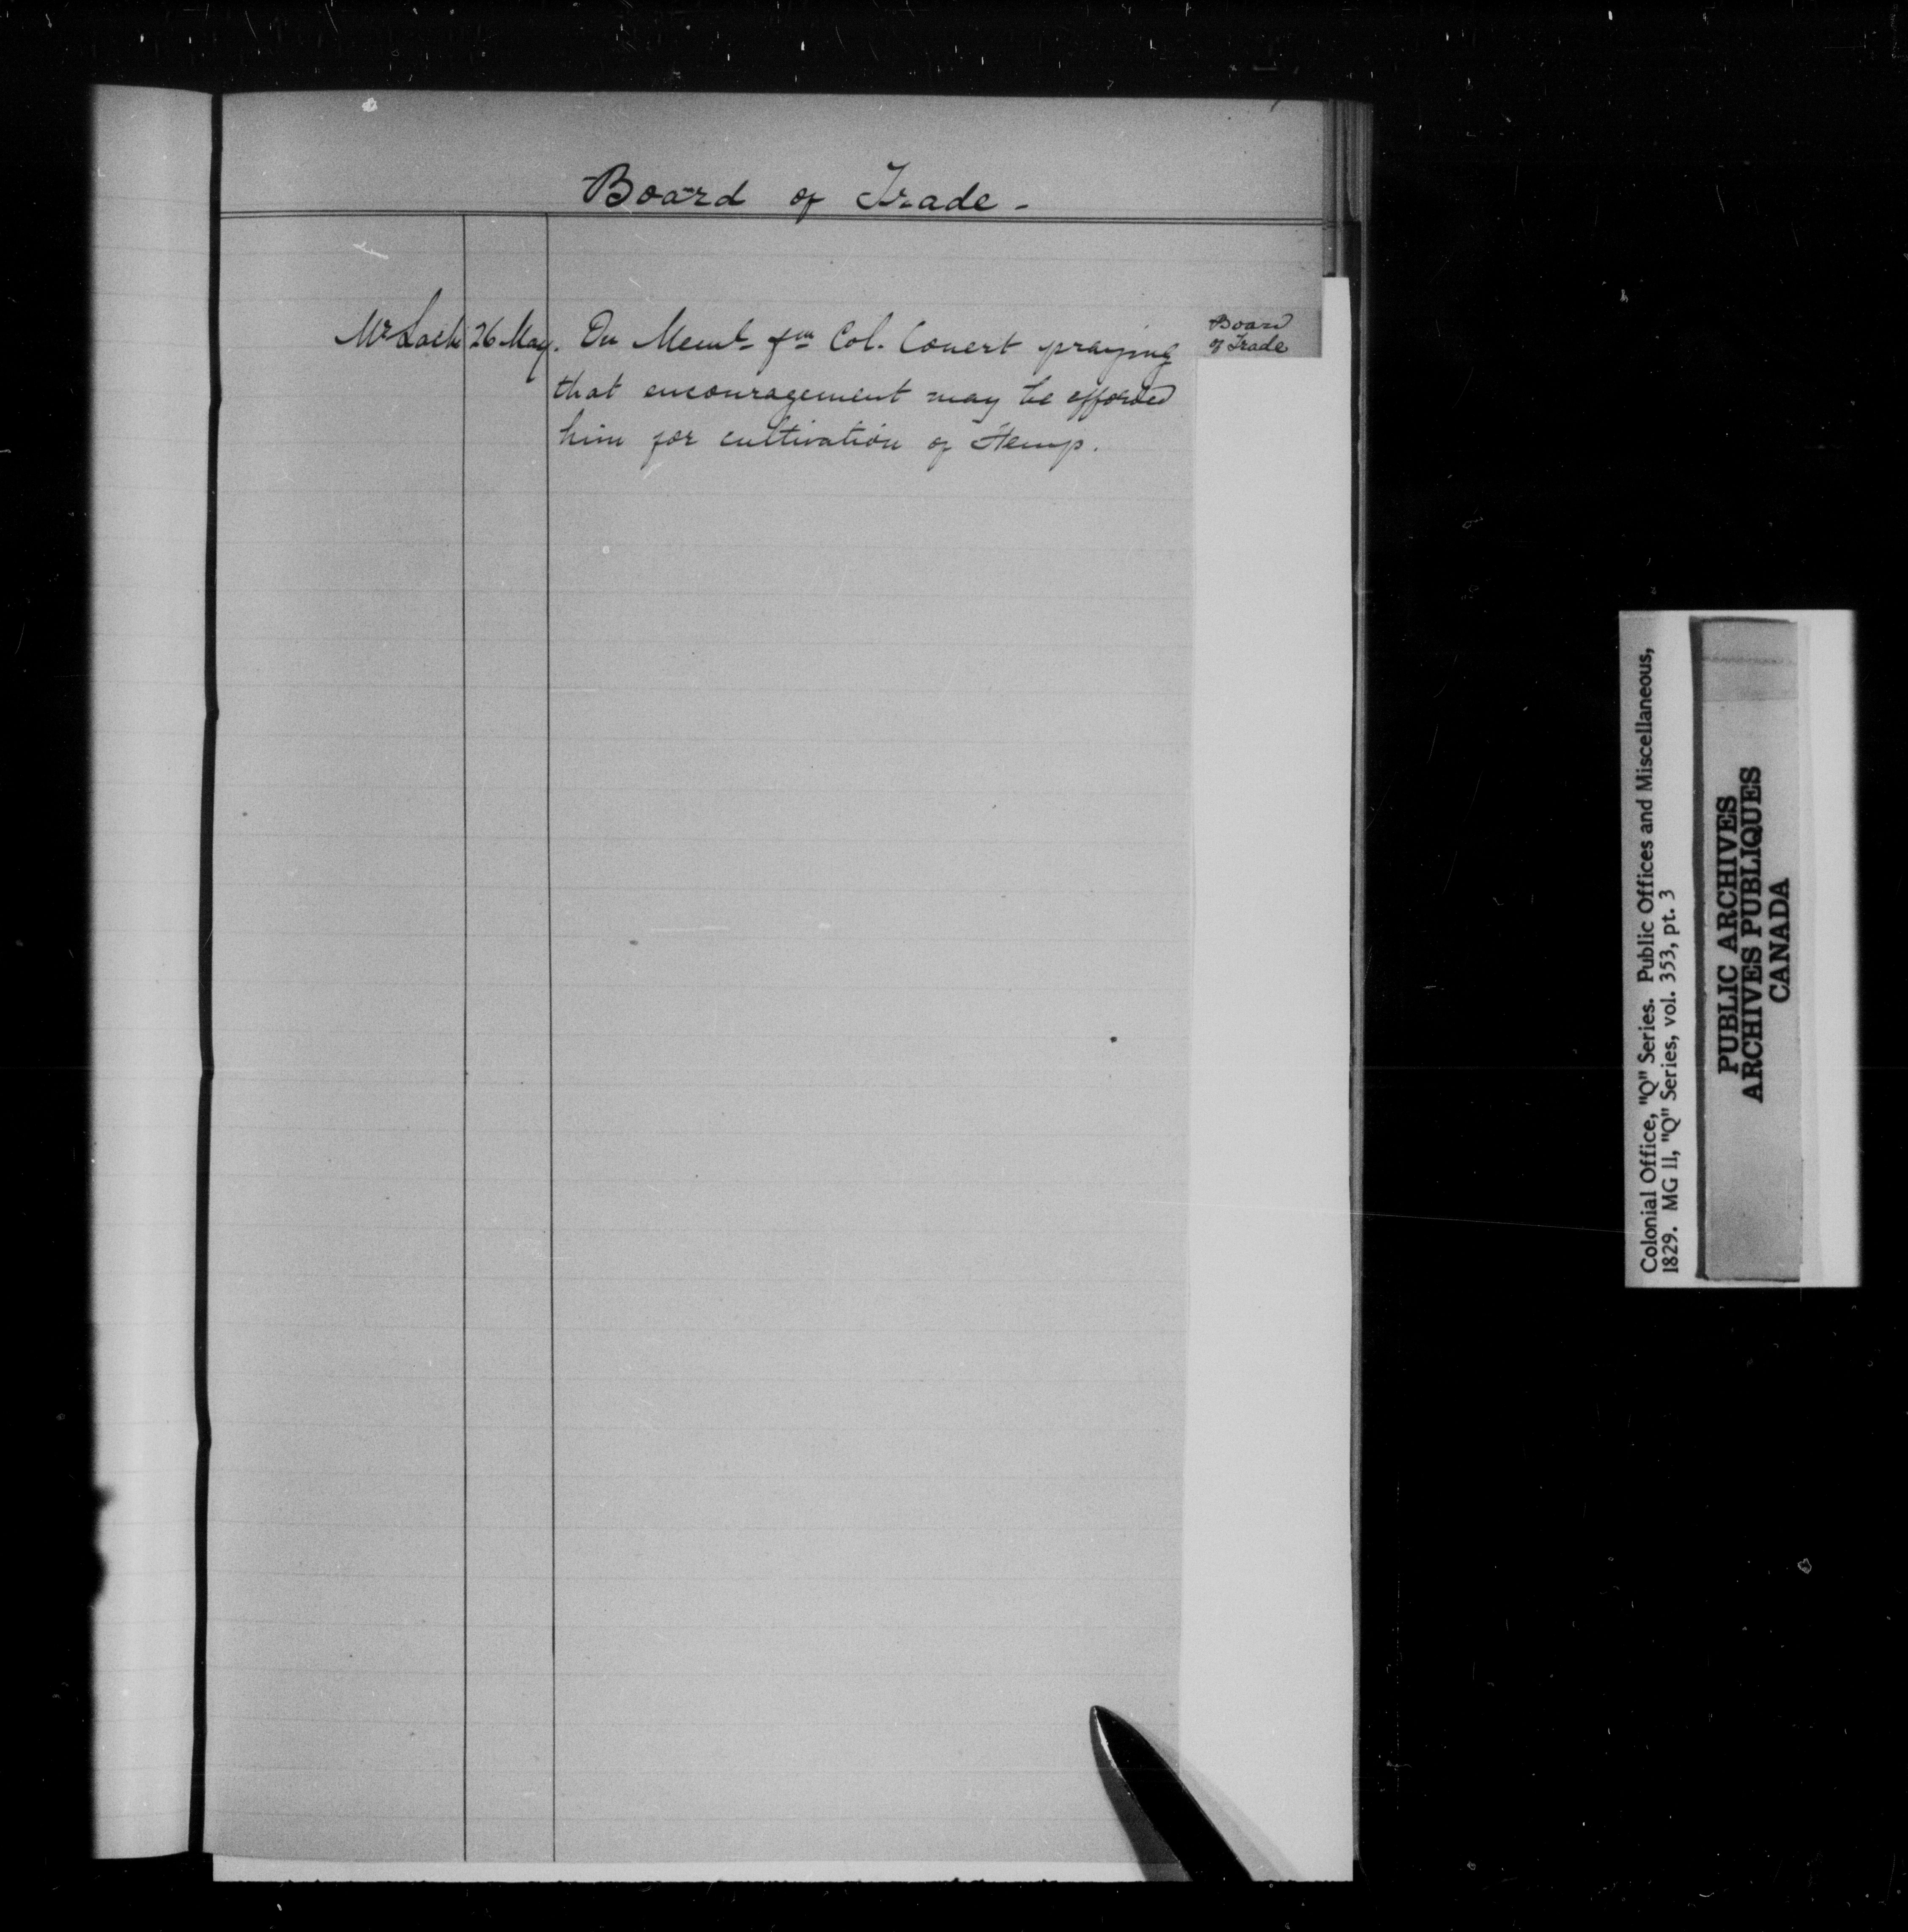 Board of Trade -
Mr Lack 26 May. On Meml fm Col. Covert praying
that encouragement may be afforded
him for cultivation of Hemp.
Board
of Trade
Colonial Office, "Q" Series. Public Offices and Miscellaneous,
1829. MG 11, "Q" Series, vol. 353, pt. 3
PUBLIC ARCHIVES
ARCHIVES PUBLIQUES
CANADA